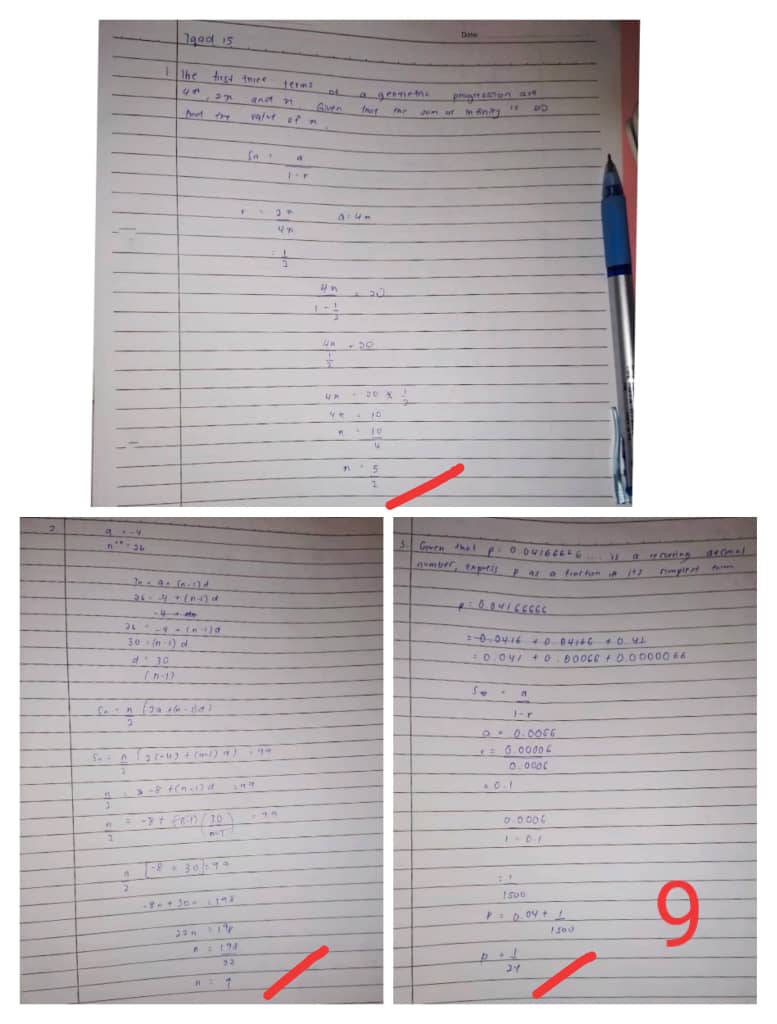 Date:
1 The first three terms of a geometric progression are
4x, 2x and x. Given that the sum of infinity is 20
find the value of x.
Sn = a
1-r
r = 2x a = 4x
4x
= 1
2
4x = 20
1 - 1
2
4x = 20
1
2
4x = 20 x 1
2
4x = 10
x = 10
4
x = 5
2
2 a = -4
n = 26
Tn = a + (n-1)d
26 = -4 + (n-1)d
26 = -4 + (n-1)d
30 = (n-1)d
d = 30
(n-1)
Sn = n (2a + (n-1)d)
2
Sn = n (2(-4) + (n-1)d) = 99
2
n = -8 + (n-1)d = 99
2
n = -8 + (n-1)(30) = 99
2 n-1
n [-8 + 30] = 99
2
-8n + 30n = 198
22n = 198
n = 198
22
n = 9
3. Given that p = 0.04166666 .... is a recurring decimal
number, express p as a fraction in its simplest form
p = 0.04166666
= 0.0416 + 0.04166 + 0.41
= 0.041 + 0.00066 + 0.0000066
S∞ = a
1-r
a = 0.0066
r = 0.00006
0.0006
= 0.1
0.0006
1 - 0.1
= 1
1500
p = 0.04 + 1
1500
p = 1
24
9